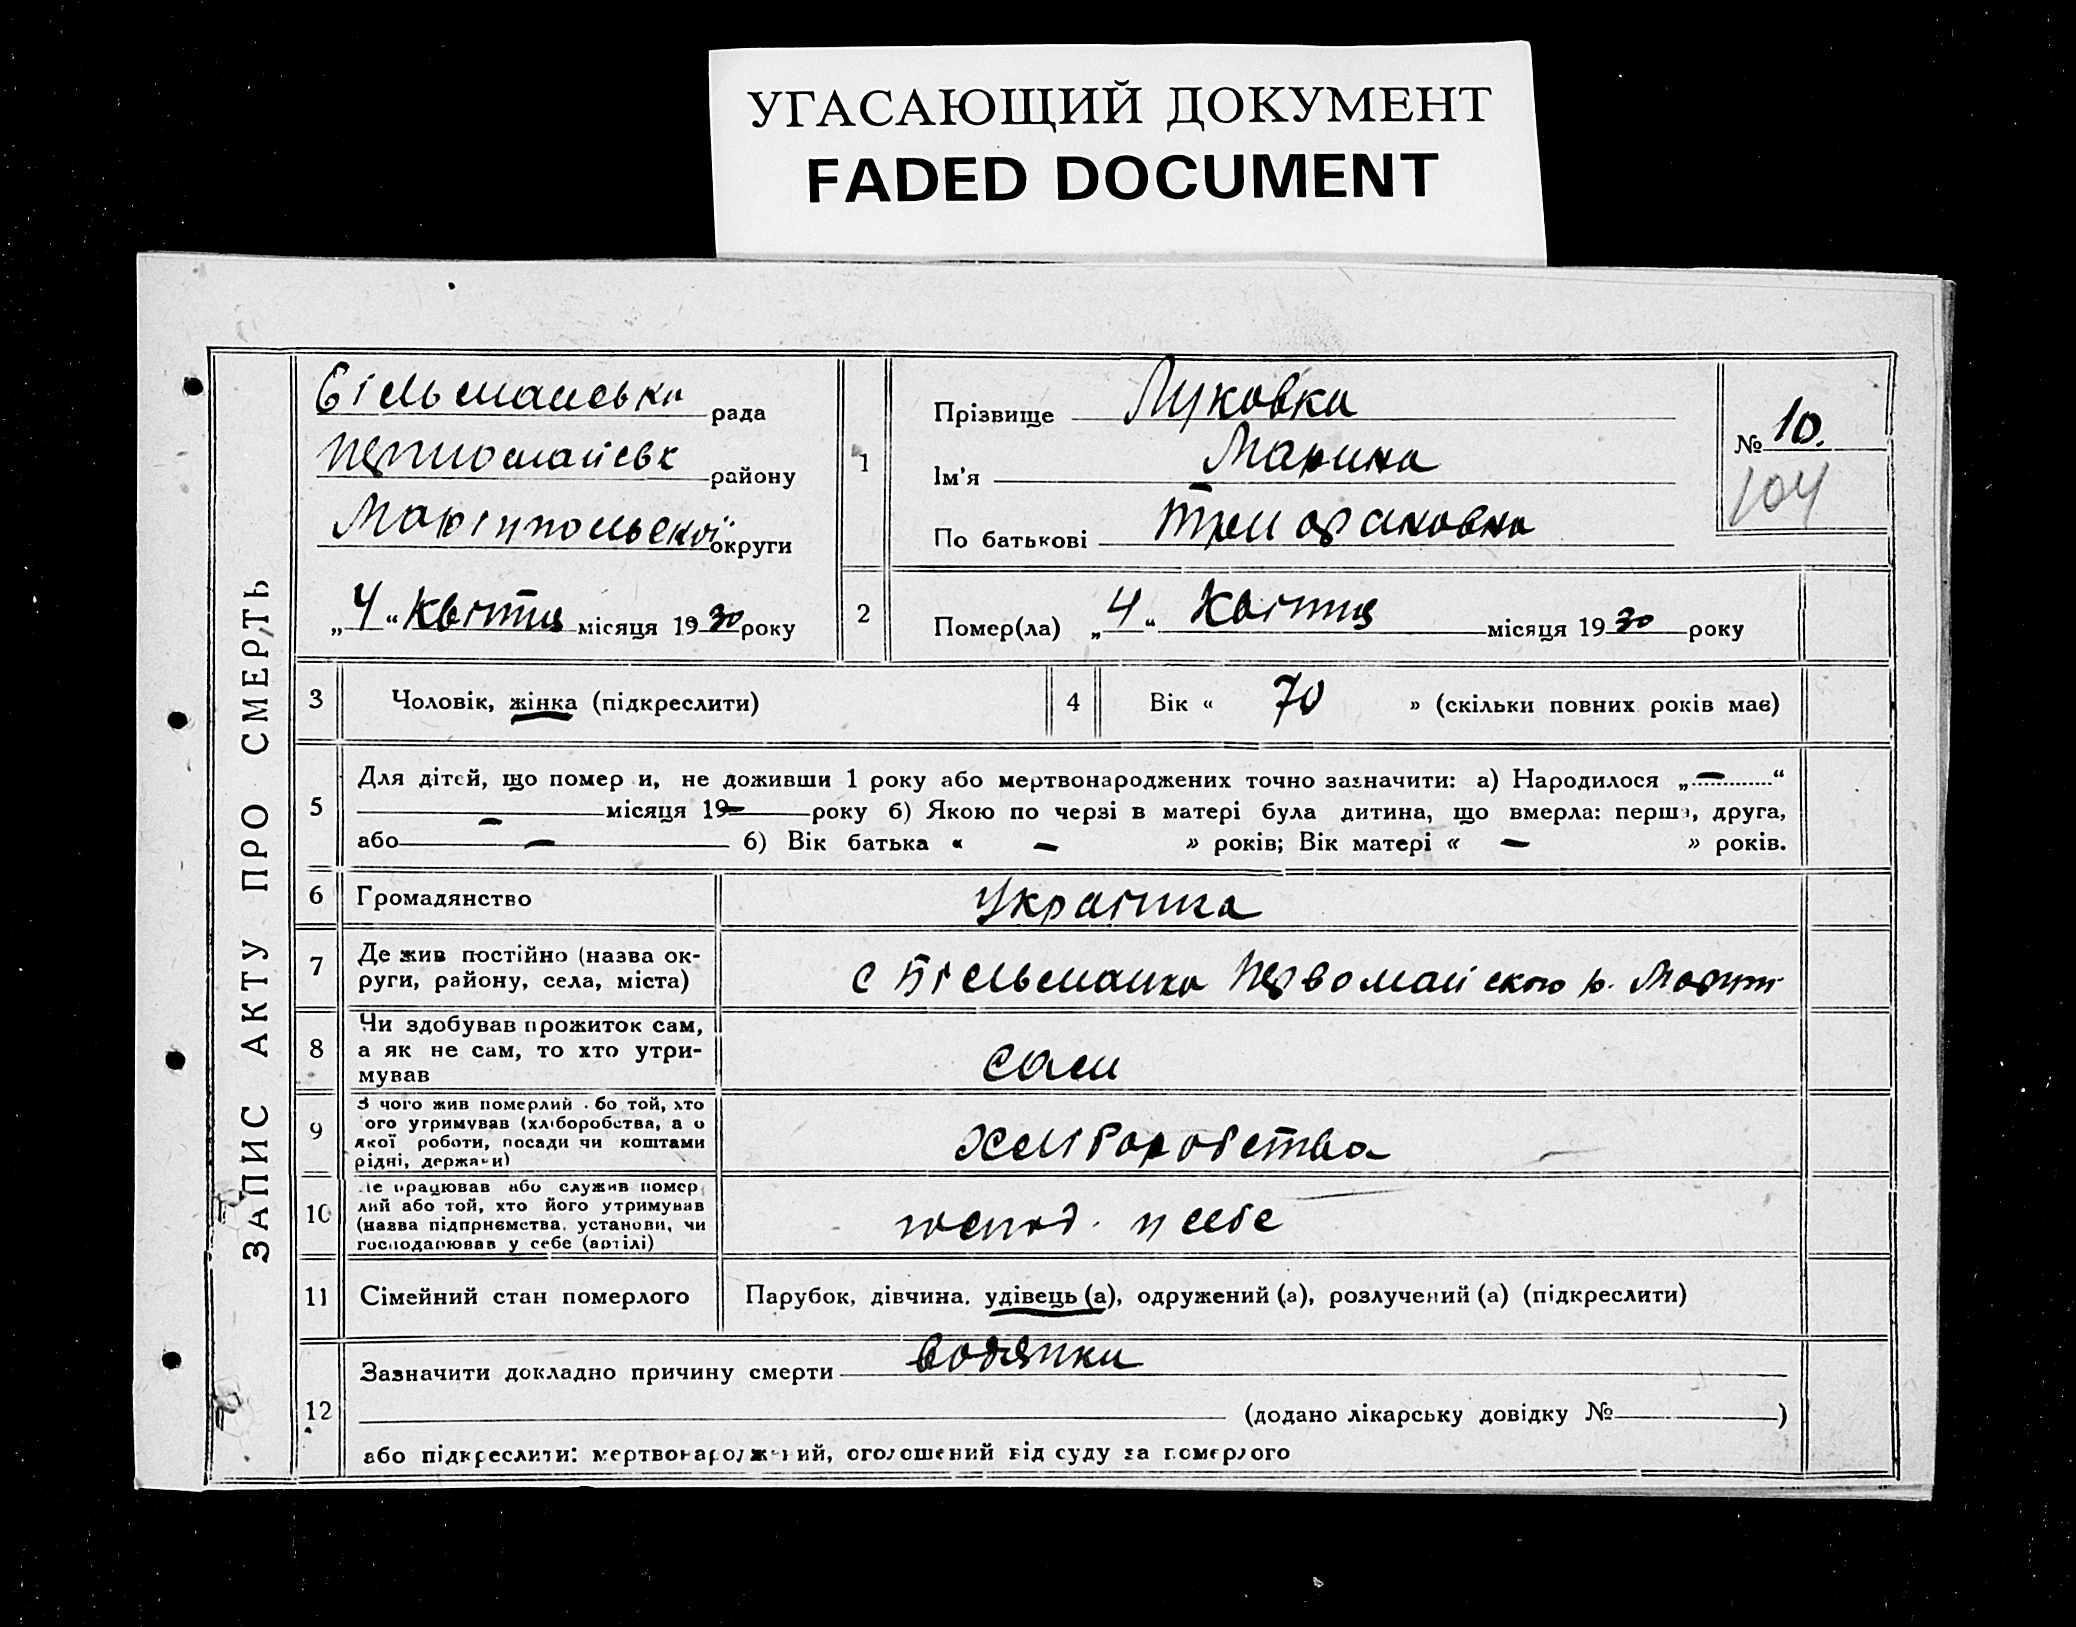 УГАСАЮЩИЙ ДОКУМЕНТ
FADED DOCUMENT
ЗАПИС АКТУ ПРО СМЕРТЬ
рада
району
Маріупольської округи
„4“ Квітня місяця 1930 року
1
Прізвище Луковка
Ім'я Марина
По батькові
№ 10.
104
2
Помер(ла) „4“ Квітня місяця 1930 року
3 Чоловік, жінка (підкреслити)
4 Вік « 70 » (скільки повних років має)
5
Для дітей, що помер и, не доживши 1 року або мертвонароджених точно зазначити: а) Народилося „ — “
— місяця 19— року б) Якою по черзі в матері була дитина, що вмерла: перша, друга,
або — б) Вік батька « — » років; Вік матері « — » років.
6 Громадянство Украінка
7
Де жив постійно (назва ок-
руги, району, села, міста)
с Більманка Первомайского р. Маріуп
8
Чи здобував прожиток сам,
а як не сам, то хто утри-
мував
сам
9
З чого жив померлий бо той, хто
ого утримував (хліборобства, а о
якої роботи, посади чи коштами
рідні, держави)
хліборобства
10
де працював або служив помер
лий або той, хто його утримував
(назва підприємства, установи, чи
господарював у себе (артілі)
господ. у себе
11 Сімейний стан померлого Парубок, дівчина, удівець (а), одружений (а), розлучений (а) (підкреслити)
12
Зазначити докладно причину смерти водянки
(додано лікарську довідку № )
або підкреслити: мертвонароджений, оголошений від суду за померлого